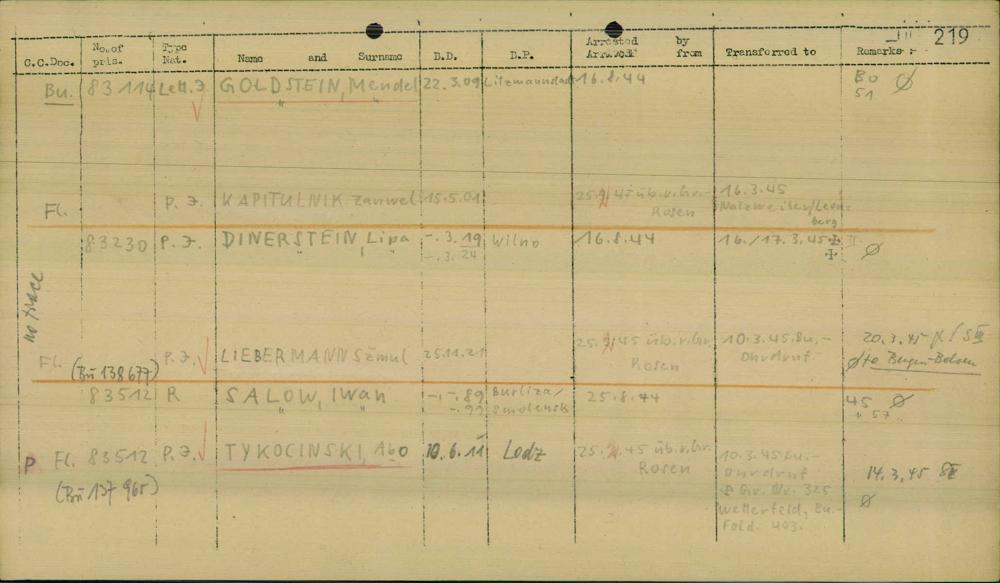 219
C.C.Doc. No. of pris. Type Nat. Name and Surname B.D. B.P. Arrested by Arrived from Transferred to Remarks:
Bu. 83114 Lett. J. GOLDSTEIN, Mendel 22.3.09 Litzmannstadt 16.8.44 Bo Ø
51
Fl. P. J. KAPITULNIK Zanwel 15.5.01 25. .45 üb.v.Gr.-Rosen 16.3.45
Natzweiler/Leonberg
83230 P. J. DINERSTEIN, Lipa -.3.19 Wilno 16.8.44 16./17.3.45
-.3.24 Ø
no trace
Fl. P. J. LIEBERMANN Szmul 25.11.21 25. .45 üb.v.Gr.Rosen 10.3.45 Bu.-Ohrdruf 20.3.45
(Bu 138677) Ø to Bergen-Belsen
83512 R SALOW, Iwan -.-.89 Burliza/ 25.8.44 45 Ø
-.99 Smolensk + 57
P Fl. 83512 P. J. TYKOCINSKI, Abo 10.6.11 Lodz 25. .45 üb.v.Gr.Rosen 10.3.45 Bu.-
(Bu 137965) Ohrdruf 14.3.45 SIII
Gr. Nr. 325 Ø
Wetterfeld, Bu.-
Feld. 403.